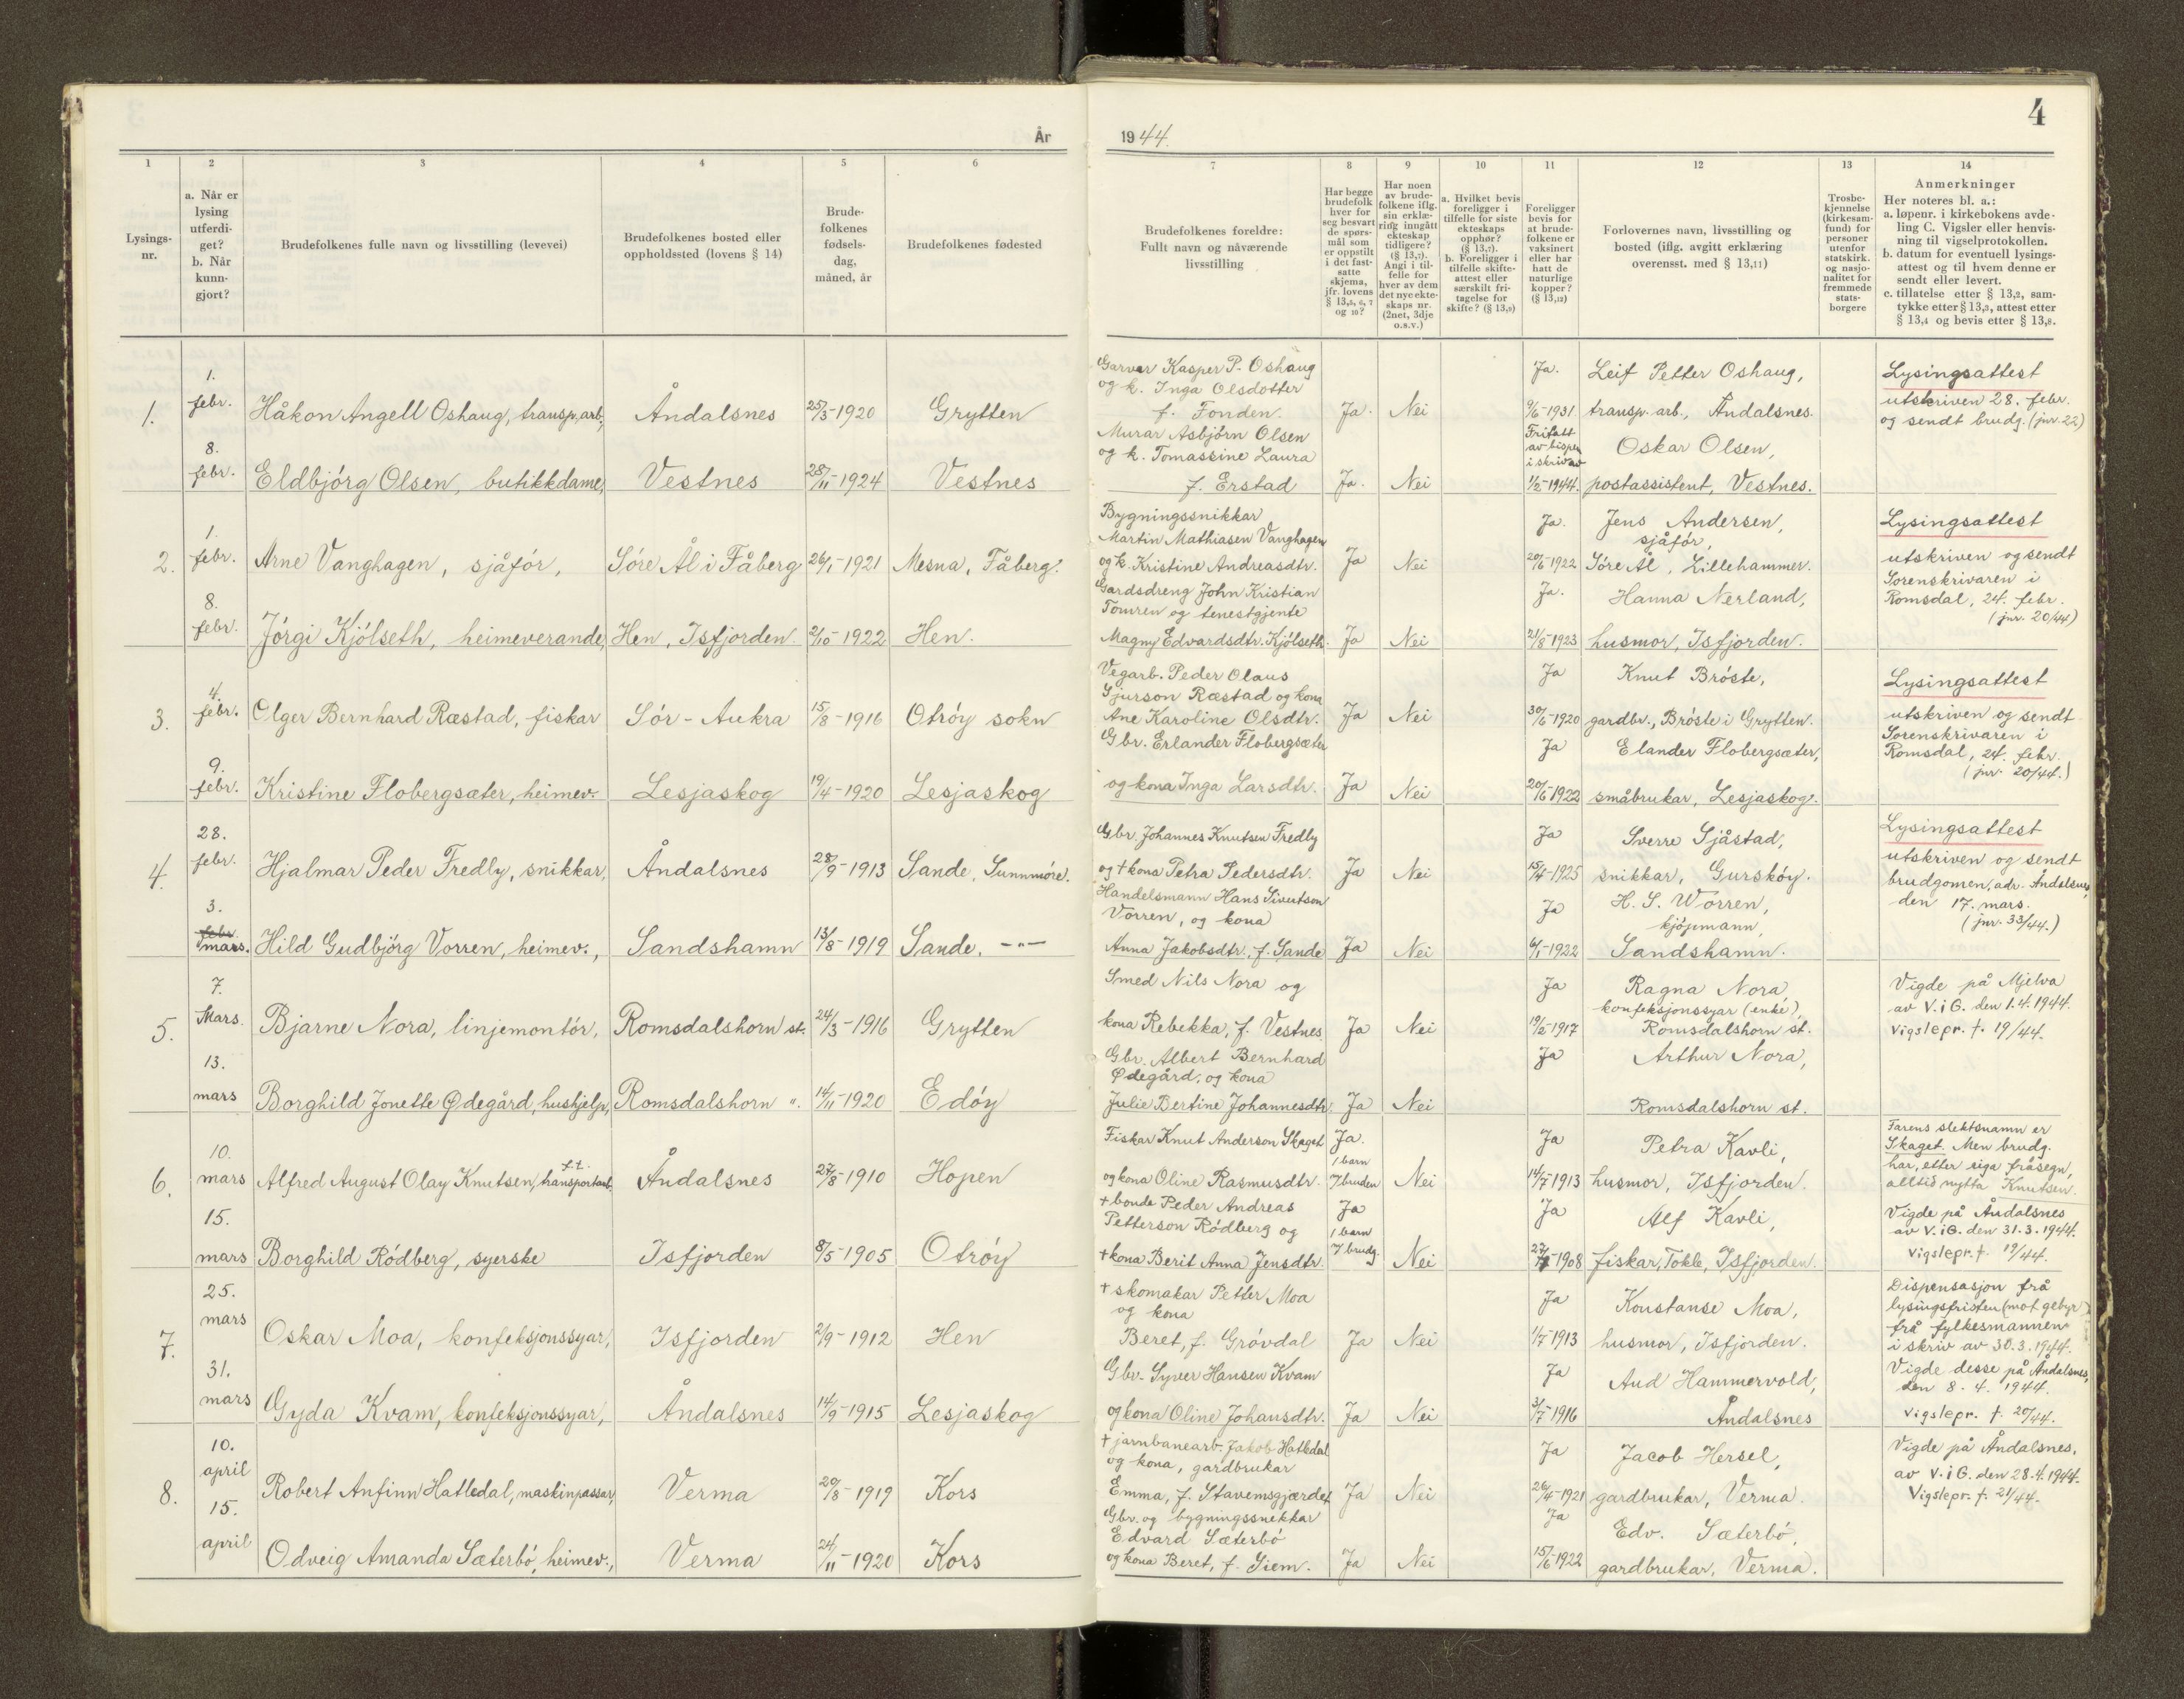 År 1944.
4
1
2
3
4
5
6
7
8
9
10
11
12
13
14
Lysings-
nr.
a. Når er
lysing
utferdi-
get?
b. Når
kunn-
gjort?
Brudefolkenes fulle navn og livsstilling (levevei)
Brudefolkenes bosted eller
oppholdssted (lovens § 14)
Brude-
folkenes
fødsels-
dag,
måned, år
Brudefolkenes fødested
Brudefolkenes foreldre:
Fullt navn og nåværende
livsstilling
Har begge
brudefolk
hver for
seg besvart
de spørs-
mål som
er oppstilt
i det fast-
satte
skjema,
jfr. lovens
§ 13,5, 6, 7
og 10?
Har noen
av brude-
folkene iflg.
sin erklæ-
ring inngått
ekteskap
tidligere?
(§ 13,7).
Angi i til-
felle for
hver av dem
det nye ekte-
skaps nr.
(2net, 3dje
o.s.v.)
a. Hvilket bevis
foreligger i
tilfelle for siste
ekteskaps
opphør?
(§ 13,7).
b. Foreligger i
tilfelle skifte-
attest eller
særskilt fri-
tagelse for
skifte? (§ 13,9)
Foreligger
bevis for
at brude-
folkene er
vaksinert
eller har
hatt de
naturlige
kopper?
(§ 13,12)
Forlovernes navn, livsstilling og
bosted (iflg. avgitt erklæring
overensst. med § 13,11)
Trosbe-
kjennelse
(kirkesam-
fund) for
personer
utenfor
statskirk.
og nasjo-
nalitet for
fremmede
stats-
borgere
Anmerkninger
Her noteres bl. a.:
a. løpenr. i kirkebokens avde-
ling C. Vigsler eller henvis-
ning til vigselprotokollen.
b. datum for eventuell lysings-
attest og til hvem denne er
sendt eller levert.
c. tillatelse etter § 13,2, sam-
tykke etter § 13,3, attest etter
§ 13,4 og bevis etter § 13,8.
1.
1.
febr.
Håkon Angell Oshaug, transp. arb.,
Åndalsnes
25/3-1920
Grytten
Garver Kasper P. Oshaug
og k. Inga Olsdotter
f. Fonden.
Ja.
Nei
Ja.
9/6-1931
Leif Petter Oshaug,
transp. arb., Åndalsnes.
Lysingsattest
utskriven 28. febr.
og sendt brudg. (jnr. 22)
8.
febr.
Eldbjórg Olsen, butikkdame,
Vestnes
28/11-1924
Vestnes
Murar Asbjórn Olsen
og k. Tomassine Laura
f. Erstad
Ja.
Nei
Fritatt
av bispen
i skriv av
1/2-1944.
Oskar Olsen,
postassistent, Vestnes.
2.
1.
febr.
Arne Vanghagen, sjåfór,
Sóre Ål i Fåberg
26/1-1921
Mesna, Fåberg.
Bygningssnikkar
Martin Mathiasen Vanghagen
og k. Kristine Andreasdtr.
Ja
Nei
Ja.
20/6-1922
Jens Andersen,
sjåfór,
Sóre Ål, Lillehammer.
Lysingsattest
utskriven og sendt
Sorenskrivaren i
Romsdal, 24. febr.
(jnr. 20/44)
8.
febr.
Jórgi Kjólseth, heimeverande,
Hen, Isfjorden.
2/10-1922
Hen.
Gardsdreng John Kristian
Tomren og tenestgjente
Magny Edvardsdtr. Kjólseth.
Ja
Nei
Ja.
21/8-1923
Hanna Nerland,
husmor, Isfjorden.
3.
4.
febr.
Olger Bernhard Ræstad, fiskar
Sór-Aukra
15/8-1916
Otróy sokn
Vegarb. Peder Olaus
Sjurson Ræstad og kona
Ane Karoline Olsdtr.
Ja
Nei
Ja
30/6-1920
Knut Bróste,
gardbr., Bróste i Grytten.
Lysingsattest
utskriven og sendt
Sorenskrivaren i
Romsdal, 24. febr.
(jnr. 20/44.)
9.
febr.
Kristine Flobergsæter, heimev.
Lesjaskog
19/4-1920
Lesjaskog
Gbr. Erlander Flobergsæter
og kona Inga Larsdtr.
Ja
Nei
Ja
20/6-1922
Elander Flobergsæter,
småbrukar, Lesjaskog.
4.
28.
febr.
Hjalmar Peder Fredly, snikkar,
Åndalsnes
28/9-1913
Sande, Sunnmóre.
Gbr. Johannes Knutsen Fredly
og † kona Petra Pedersdtr.
Ja
Nei
Ja
15/4-1925
Sverre Sjåstad,
snikkar, Gurskóy.
Lysingsattest
utskriven og sendt
brudgomen, adr. Åndalsnes,
den 17. mars.
(jnr. 33/44.)
3.
febr.
mars.
Hild Gudbjörg Vorren, heimev.,
Sandshamn
13/8-1919
Sande, -"-
Handelsmann Hans Sivertson
Vorren, og kona
Anna Jakobsdtr., f. Sande
Ja
Nei
Ja
6/1-1922
H. S. Worren,
kjópmann,
Sandshamn.
5.
7.
Mars.
Bjarne Nora, linjemontór,
Romsdalshorn st.
24/3-1916
Grytten
Smed Nils Nora og
kona Rebekka, f. Vestnes
Ja
Nei
Ja
19/2-1917
Ragna Nora,
konfeksjonssyar (enke),
Romsdalshorn st.
Vigde på Mjelva
av V. i G. den 1.4.1944.
Vigslepr. f. 19/44.
13.
mars
Borghild Jonette Ødegård, hushjelp,
Romsdalshorn ".
14/11-1920
Edóy
Gbr. Albert Bernhard
Ødegård, og kona
Julie Bertine Johannesdtr.
Ja
Nei
Ja
Arthur Nora,
Romsdalshorn st.
6.
10.
mars
Alfred August Olay Knutsen, f.t. transportarb.
Åndalsnes
27/8-1910
Hopen
Fiskar Knut Anderson Skaget
og kona Oline Rasmusdtr.
Ja.
1 barn
7 bruden
Nei
Ja
14/7-1913
Petra Kavli,
husmor, Isfjorden.
Farens slektsnamn er
Skaget. Men brudg.
har, etter eiga fråsegn,
alltid nytta Knutsen.
15.
mars
Borghild Ródberg, syerske
Isfjorden
8/5-1905
Otróy
† bonde Peder Andreas
Petterson Ródberg og
† kona Berit Anna Jensdtr.
Ja
1 barn
7 brudg.
Nei
Ja
-1908
Alf Kavli,
fiskar, Tokle, Isfjorden.
Vigde på Åndalsnes
av V. i G. den 31.3.1944.
Vigslepr. f. 19/44.
7.
25.
mars
Oskar Moa, konfeksjonssyar,
Isfjorden
2/9-1912
Hen
† skomakar Petter Moa
og kona
Beret, f. Gróvdal
Ja
Nei
Ja
1/7-1913
Konstanse Moa,
husmor, Isfjorden.
Dispensasjon frå
lysingsfristen (mot gebyr)
frå fylkesmannen
i skriv av 30.3.1944.
31.
mars
Gyda Kvam, konfeksjonssyar,
Åndalsnes
14/9-1915
Lesjaskog
Gbr. Syver Hansen Kvam
og kona Oline Johansdtr.
Ja
Nei
Ja
3/7-1916
Aud Hammervold,
Åndalsnes
Vigde desse på Åndalsnes,
den 8.4.1944.
Vigslepr. f. 20/44.
8.
10.
april
Robert Anfinn Hatledal, maskinpassar,
Verma
20/8-1919
Kors
† jarnbanearb. Jakob Hatledal
og kona, gardbrukar
Emma, f. Stavemsgjærdet
Ja
Nei
Ja
26/4-1921
Jacob Hersel,
gardbrukar, Verma.
Vigde på Åndalsnes,
av V. i G. den 28.4.1944.
Vigslepr. f. 21/44.
15.
april
Odveig Amanda Sæterbó, heimev.,
Verma
24/11-1920
Kors
Gbr. og bygningssnekkar
Edvard Sæterbó
og kona Beret, f. Siem.
Ja
Nei
Ja
15/6-1922
Edv. Sæterbó,
gardbrukar, Verma.